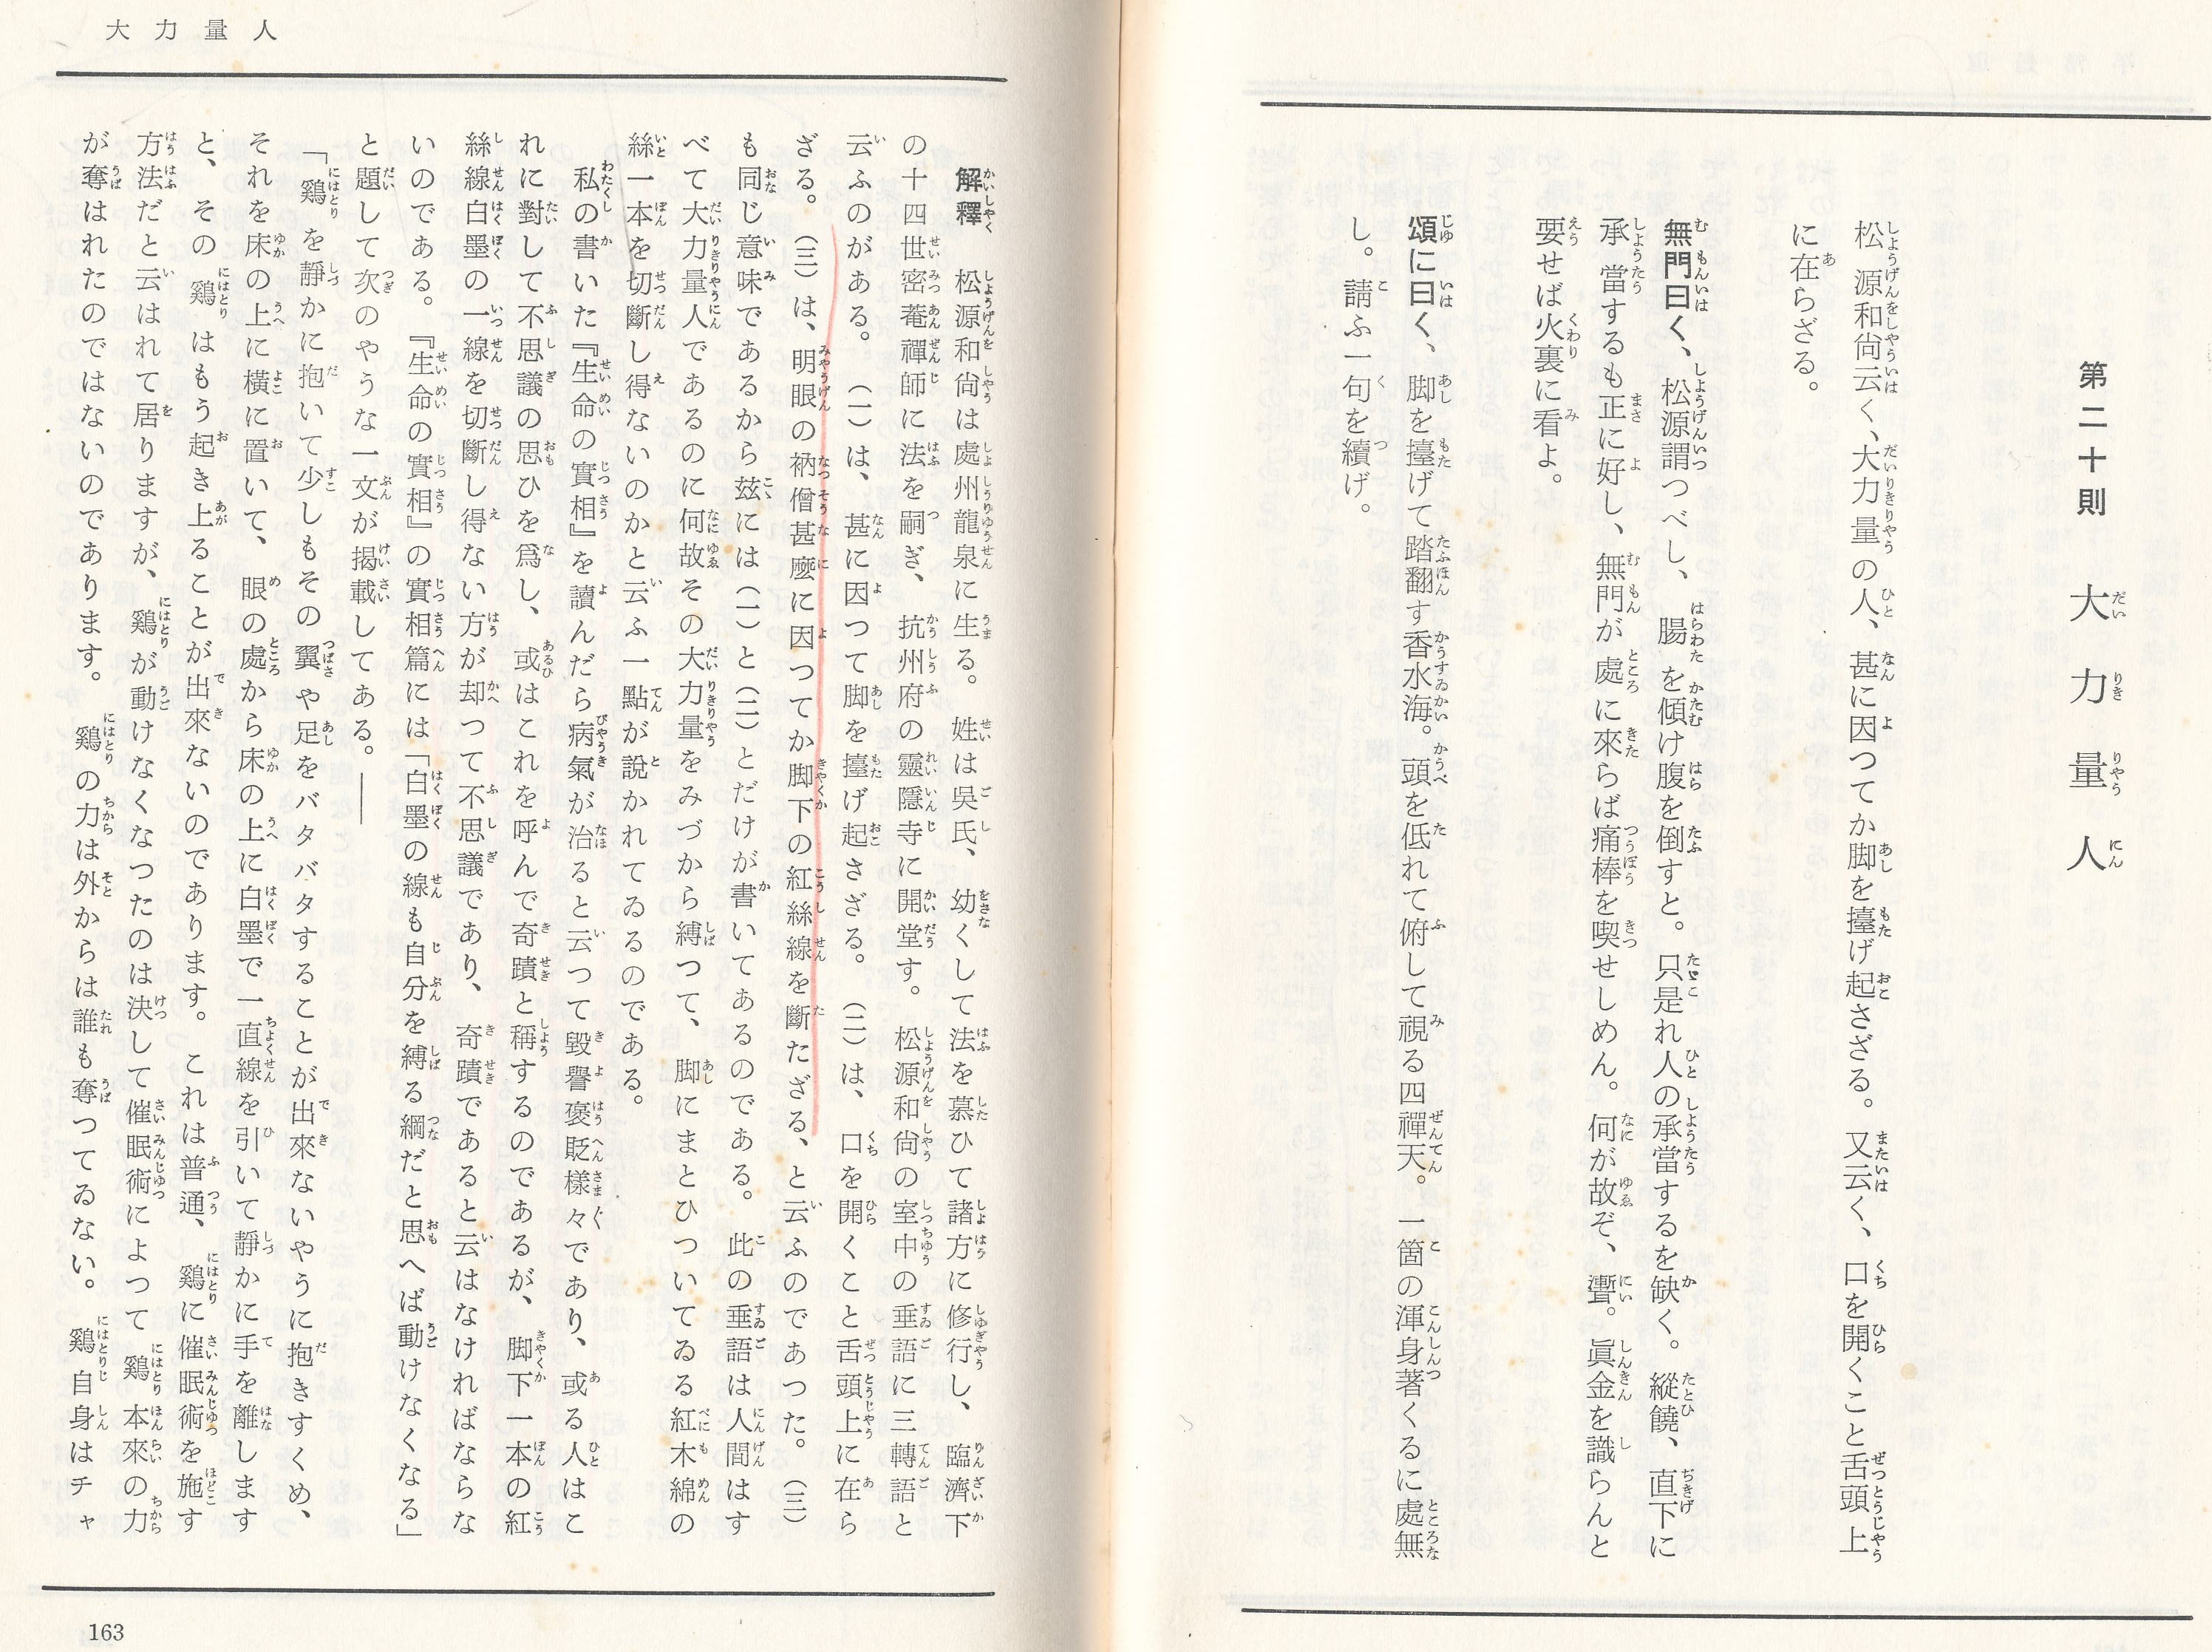 第二十則　大力量人
松源和尙云く、大力量の人、甚に因つてか脚を擡げ起さざる。又云く、口を開くこと舌頭上
に在らざる。
無門曰く、松源謂つべし、腸を傾け腹を倒すと。只是れ人の承當するを缺く。縱饒、直下に
承當するも正に好し、無門が處に來らば痛棒を喫せしめん。何が故ぞ、聻。眞金を識らんと
要せば火裏に看よ。
頌に曰く、脚を擡げて踏翻す香水海。頭を低れて俯して視る四禪天。一箇の渾身著くるに處無
し。請ふ一句を續げ。
大力量人
解釋　松源和尙は處州龍泉に生る。姓は吳氏、幼くして法を慕ひて諸方に修行し、臨濟下
の十四世密菴禪師に法を嗣ぎ、抗州府の靈隱寺に開堂す。松源和尙の室中の垂語に三轉語と
云ふのがある。(一)は、甚に因つて脚を擡げ起さざる。(二)は、口を開くこと舌頭上に在ら
ざる。(三)は、明眼の衲僧甚麼に因つてか脚下の紅絲線を斷たざる、と云ふのであつた。(三)
も同じ意味であるから玆には(一)と(二)とだけが書いてあるのである。此の垂語は人間はす
べて大力量人であるのに何故その大力量をみづから縛つて、脚にまとひついてゐる紅木綿の
絲一本を切斷し得ないのかと云ふ一點が說かれてゐるのである。
私の書いた『生命の實相』を讀んだら病氣が治ると云つて毀譽褒貶樣々であり、或る人はこ
れに對して不思議の思ひを爲し、或はこれを呼んで奇蹟と稱するのであるが、脚下一本の紅
絲線白墨の一線を切斷し得ない方が却つて不思議であり、奇蹟であると云はなければならな
いのである。『生命の實相』の實相篇には「白墨の線も自分を縛る綱だと思へば動けなくなる」
と題して次のやうな一文が揭載してある。――
「鷄を靜かに抱いて少しもその翼や足をバタバタすることが出來ないやうに抱きすくめ、
それを床の上に橫に置いて、眼の處から床の上に白墨で一直線を引いて靜かに手を離します
と、その鷄はもう起き上ることが出來ないのであります。これは普通、鷄に催眠術を施す
方法だと云はれて居りますが、鷄が動けなくなつたのは決して催眠術によつて鷄本來の力
が奪はれたのではないのであります。鷄の力は外からは誰も奪つてゐない。鷄自身はチャ
163